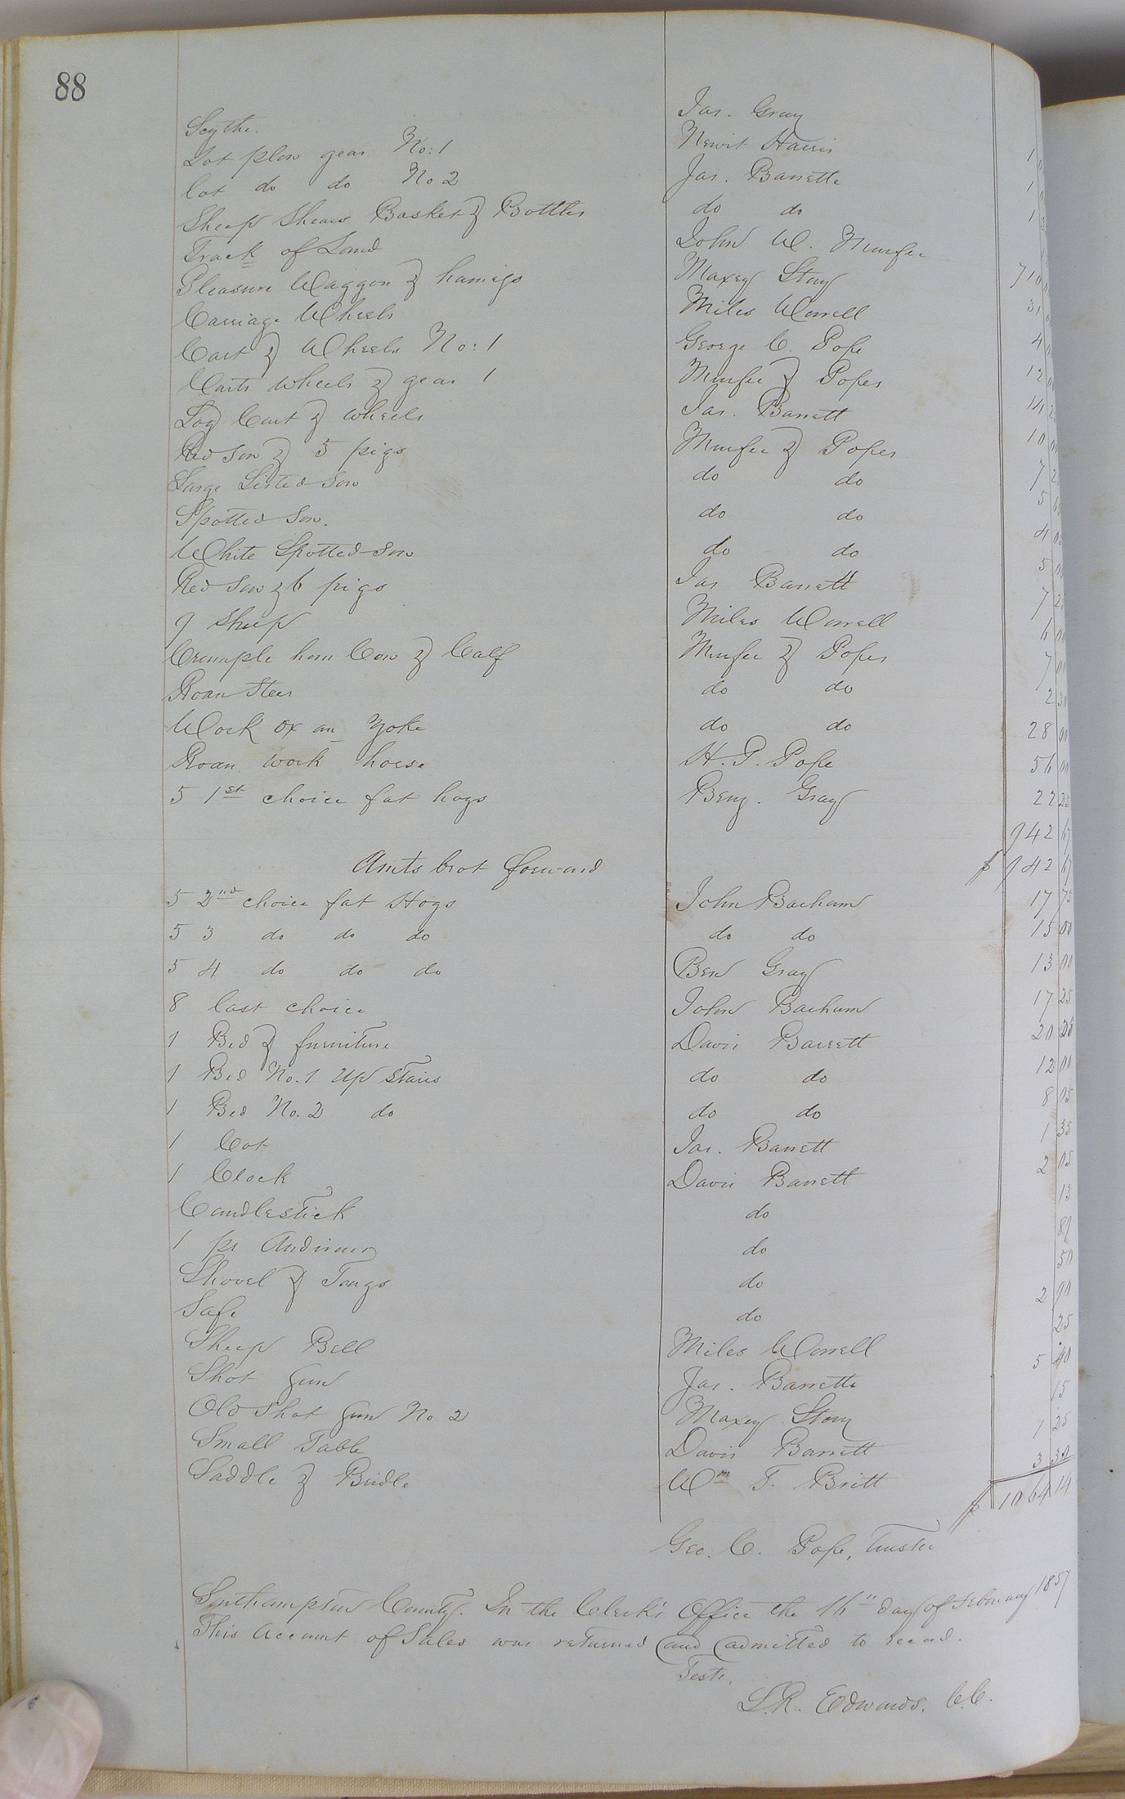 88
Scythe. Jas. Gray
Lot plow gear No: 1 Newit Harris 1
lot do do No 2 Jas. Barrette 1
Sheep Shears Basket & Bottles do do 1
Track of Land John W. Murfee 710
Pleasure Waggon & harniss Maxey Story 31
Carriage Wheels Miles Worrell 4
Cart & Wheels No: 1 George C. Pope 12
Carts wheels & gear 1 Murfee & Popes 14
Log Cart & wheels Jas. Barrett 10
Red Sow & 5 pigs Murfee & Popes 7
Large Listed Sow do do 5
Spotted Sow. do do 4
White Spotted Sow do do 5
Red Sow & 6 pigs Jas Barrett 7
9 Sheep Miles Worrell 6
Crumple horn Cow & Calf Murfee & Popes 7
Roan Steer do do 2 50
Work ox an Yoke do do 28 00
Roan work horse H. P. Pope 56 00
5 1st choice fat hogs Benj. Gray 22 25
942 67
Amts brot forward $ 942 67
5 2nd choice fat Hogs John Barham 17 75
5 3 do do do do do 15 00
5 4 do do do Ben Gray 13 00
8 last choice John Barham 17 25
1 Bed & furniture Davis Barrett 20 25
1 Bed No. 1 Up Stairs do do 12 00
1 Bed No. 2 do do do 8 05
1 Cot Jas. Barrett 1 35
1 Clock Davis Barrett 2 05
Candlestick do 13
1 pr Andirons do
Shovel & Tongs do 50
Safe do 2 00
Sheep Bell Miles Worrell 25
Shot Gun Jas. Barrette 5 40
Old Shot Gun No. 2 Maxey Story 15
Small Table Davis Barrett 1 25
Saddle & Bridle Wm T. Britt 3 30
$ 1064 14
Geo. C. Pope, Trustee
Southampton County. In the Clerk's Office the 16th day of February 1857
This Account of Sales was returned and admitted to record.
Teste,
L.R. Edwards. C.C.